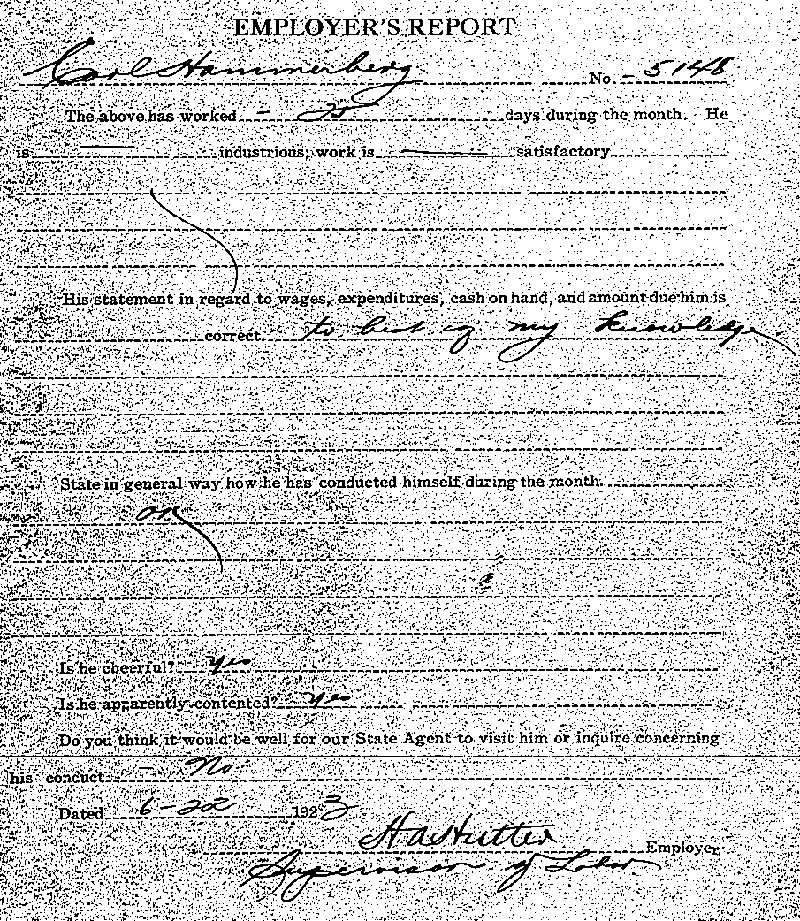 EMPLOYER'S REPORT
Carl Hammerberg No. - 5148
The above has worked - 25 days during the month. He
is industrious; work is satisfactory
His statement in regard to wages, expenditures, cash on hand, and amount due him is
correct to best of my knowledge
State in general way how he has conducted himself during the month.
OK
Is he cheerful? yes
Is he apparently contented? yes
Do you think it would be well for our State Agent to visit him or inquire concerning
his conduct - No
Dated 6-22 1923
Employer
Supervisor of Labor